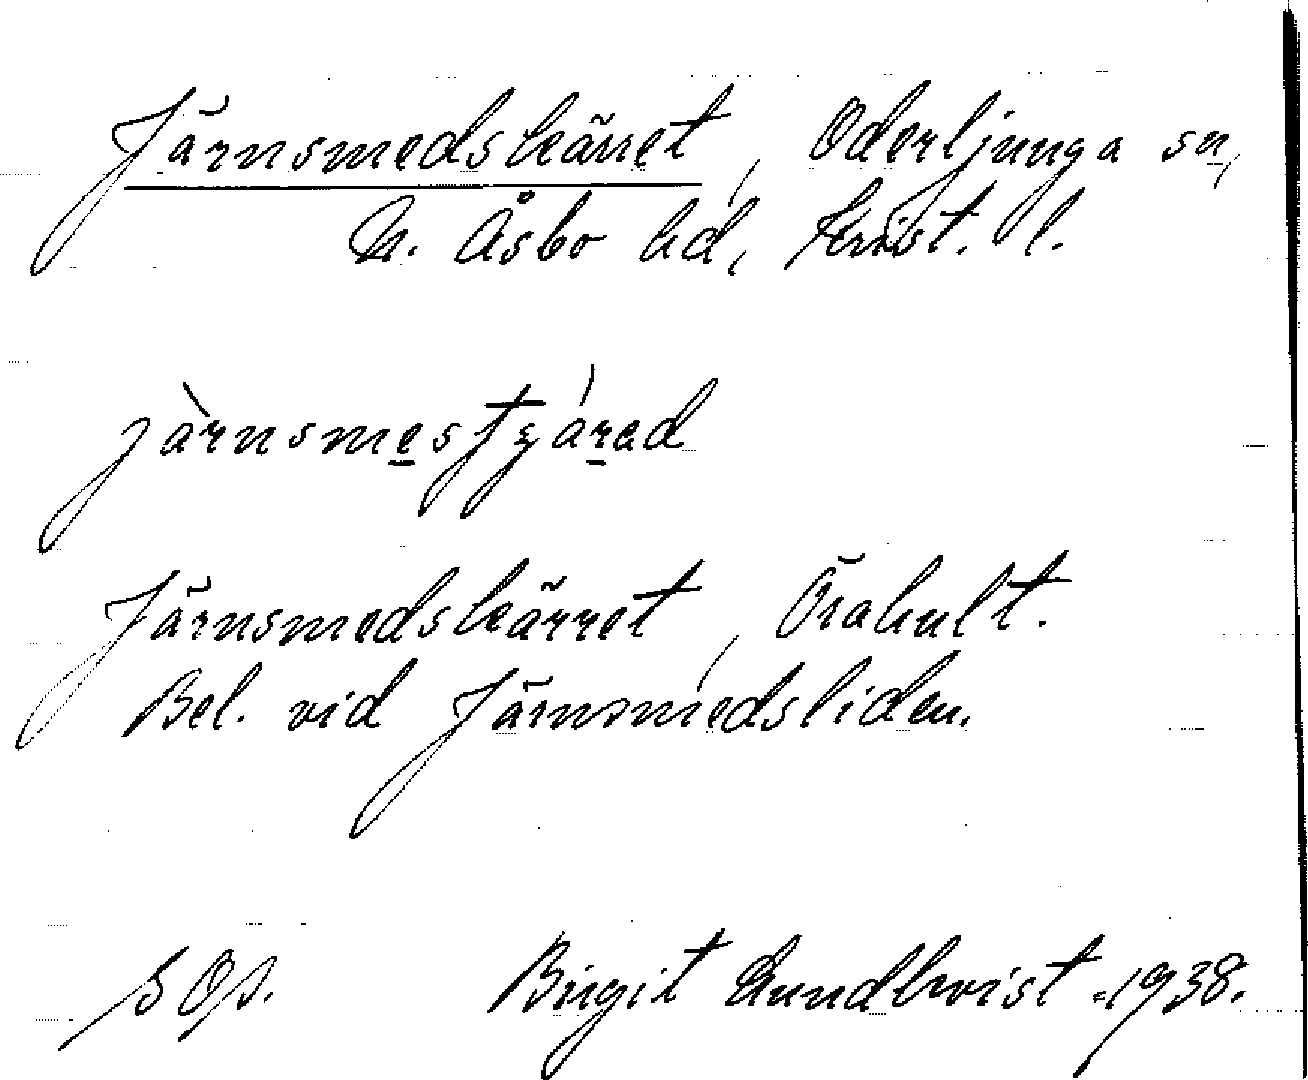 Järnsmedskärret, Oderljunga sn,
N. Åsbo hd, Krist. l.
Järnsmedskärret, Örahult.
Bel. vid Järnsmedsliden.
Birgit Lundkvist 1938.